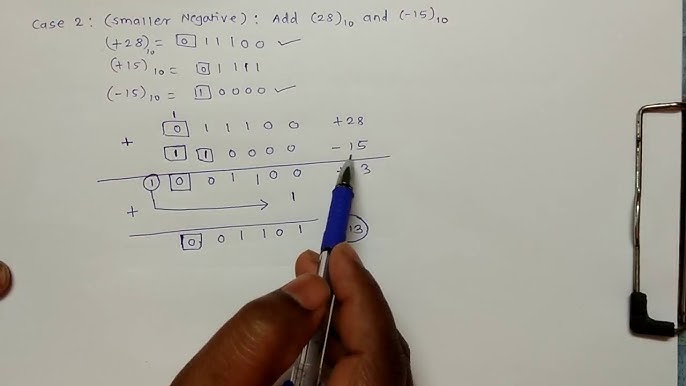 Case 2: (Smaller Negative): Add (28)10 and (-15)10
(+28)10 = 0 1 1 1 0 0 ✓
(+15)10 = 0 1 1 1 1
(-15)10 = 1 0 0 0 0 ✓
1
0 1 1 1 0 0 +28
+ 1 1 0 0 0 0 -15
1 0 0 1 1 0 0 3
+ 1
0 0 1 1 0 1 13